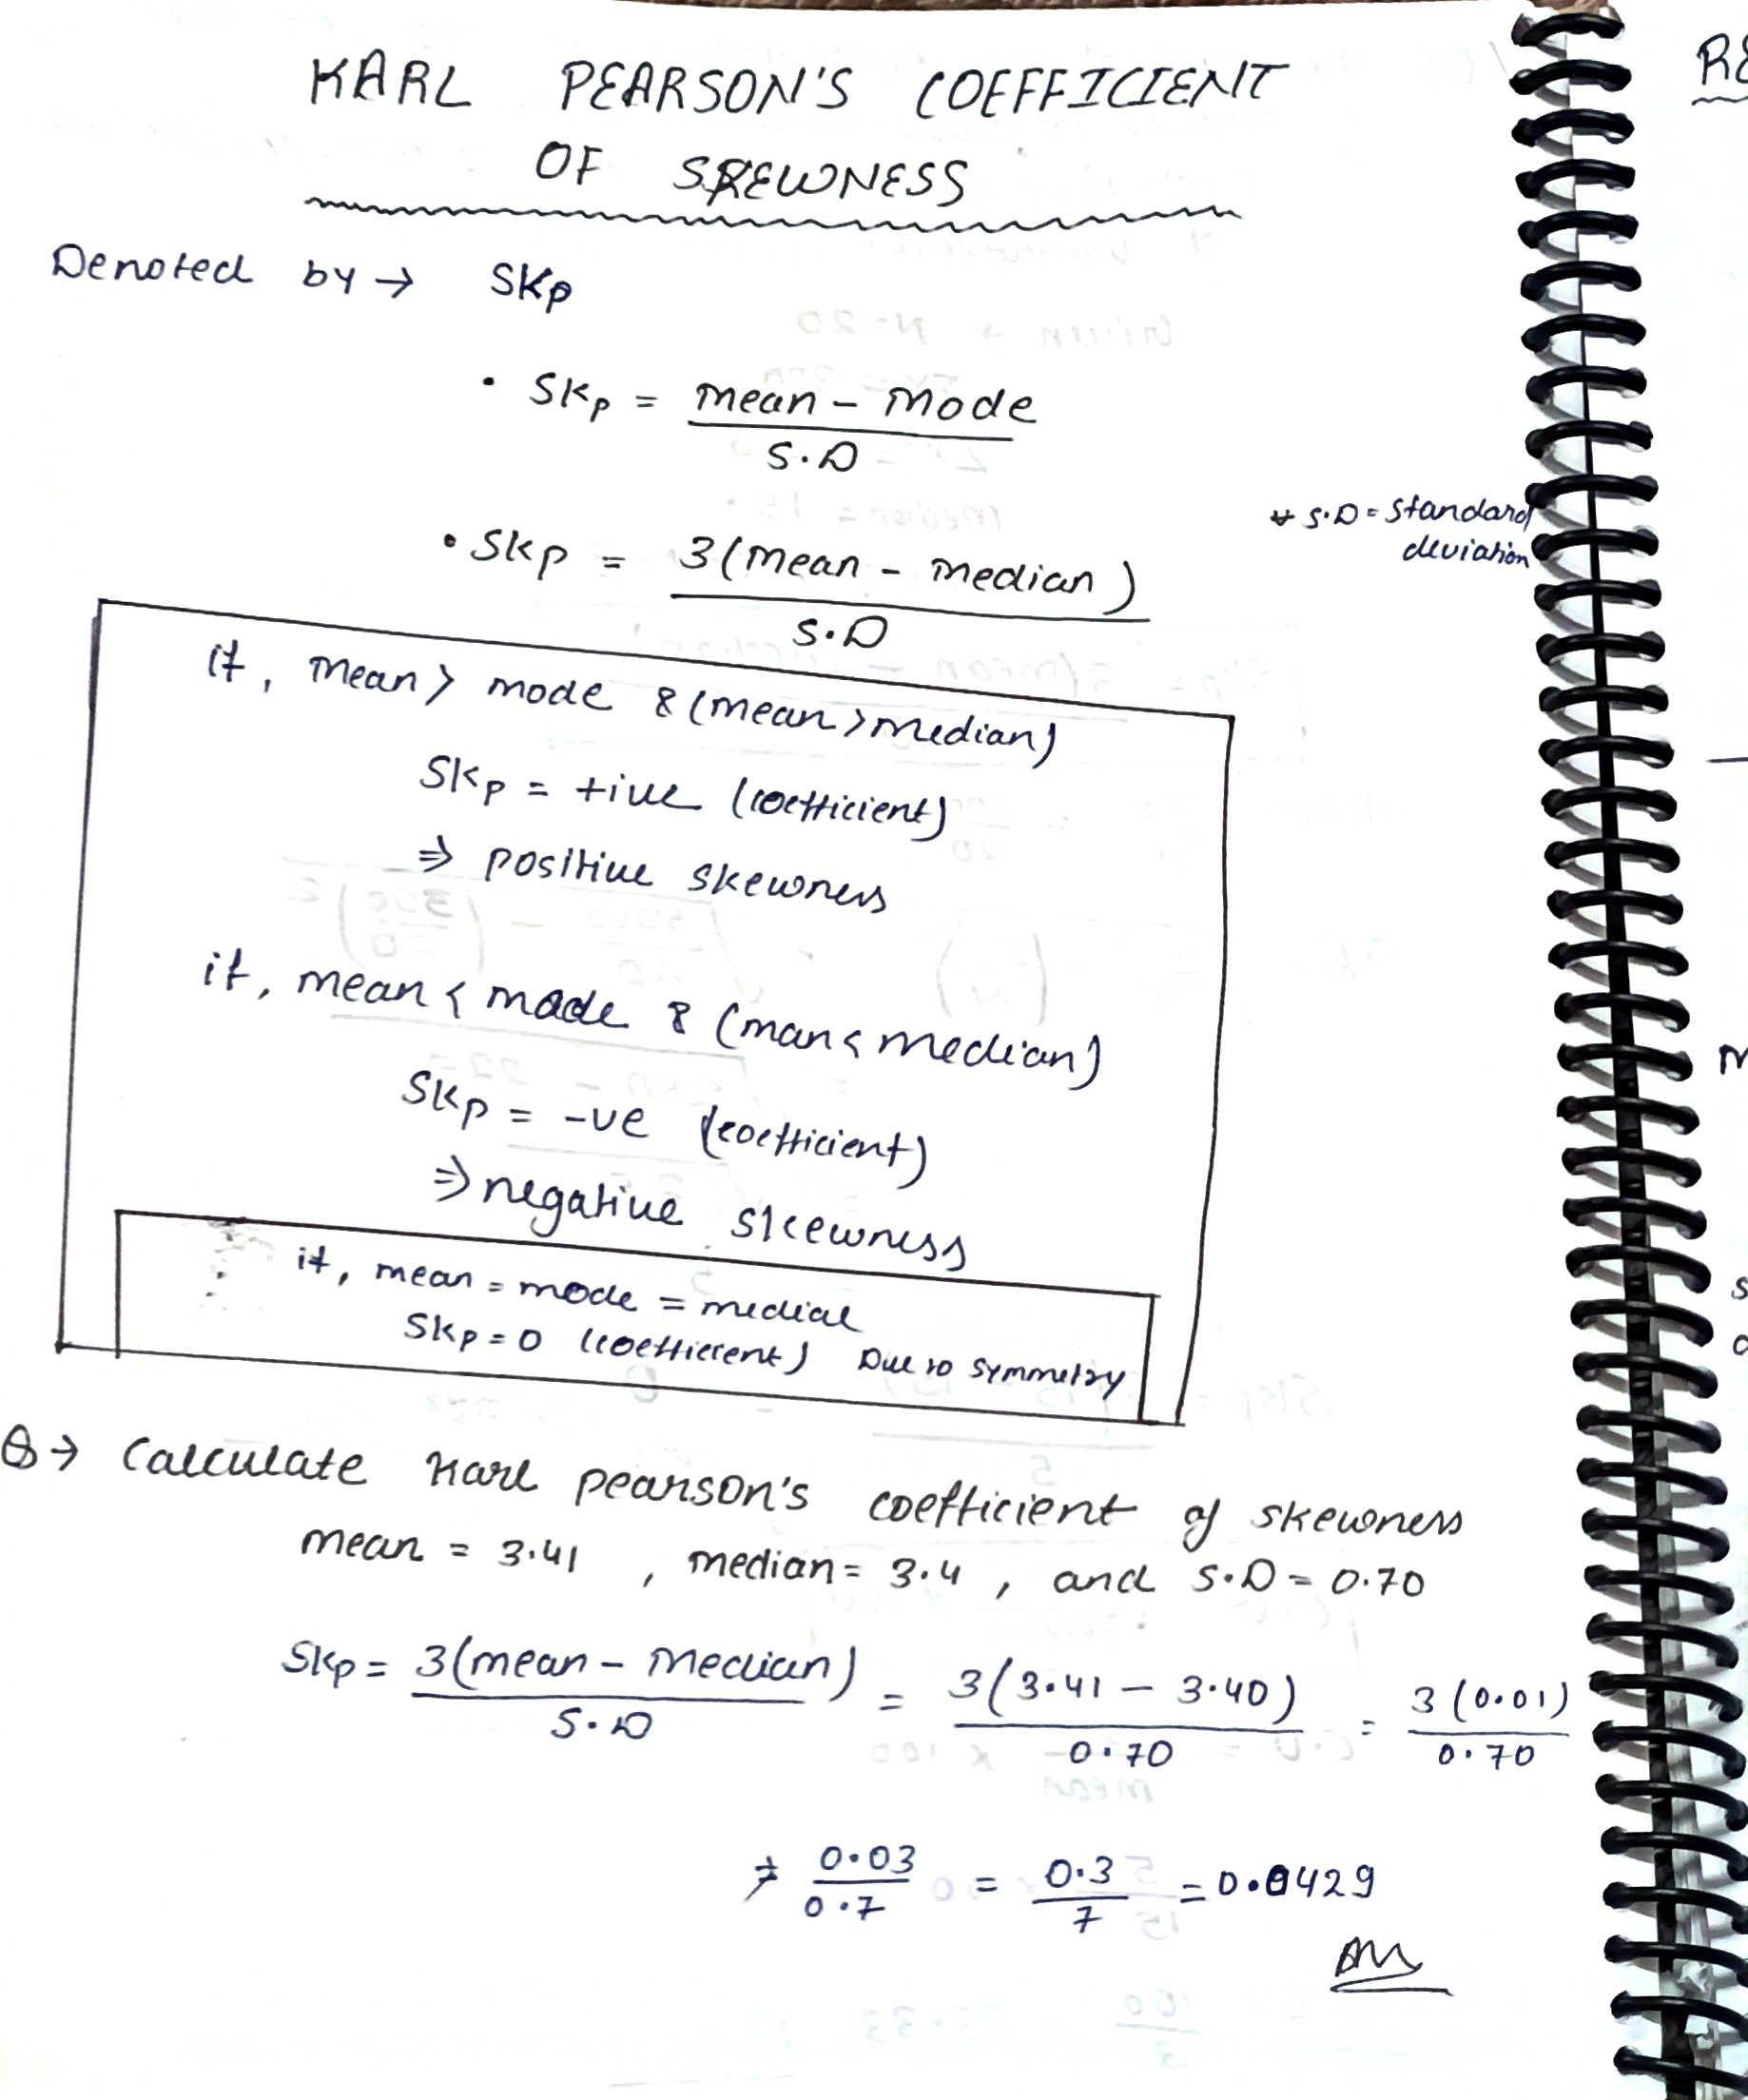 KARL PEARSON'S COEFFICIENT
OF SKEWNESS
Denoted by → SKp
• SKp = mean - Mode / S.D
* S.D = Standard deviation
• SKp = 3(mean - median) / S.D
if, mean > mode & (mean > median)
SKp = +ive (coefficient)
⇒ positive skewness
if, mean < mode & (man < median)
SKp = -ve (coefficient)
⇒ negative skewness
if, mean = mode = medial
SKp = 0 (coefficient) Due to symmetry
Q → Calculate Karl pearson's coefficient of skewness
mean = 3.41 , median = 3.4 , and S.D = 0.70
SKp = 3(mean - Median) / S.D = 3(3.41 - 3.40) / 0.70 = 3(0.01) / 0.70
⇒ 0.03 / 0.7 = 0.3 / 7 = 0.0429
Ans